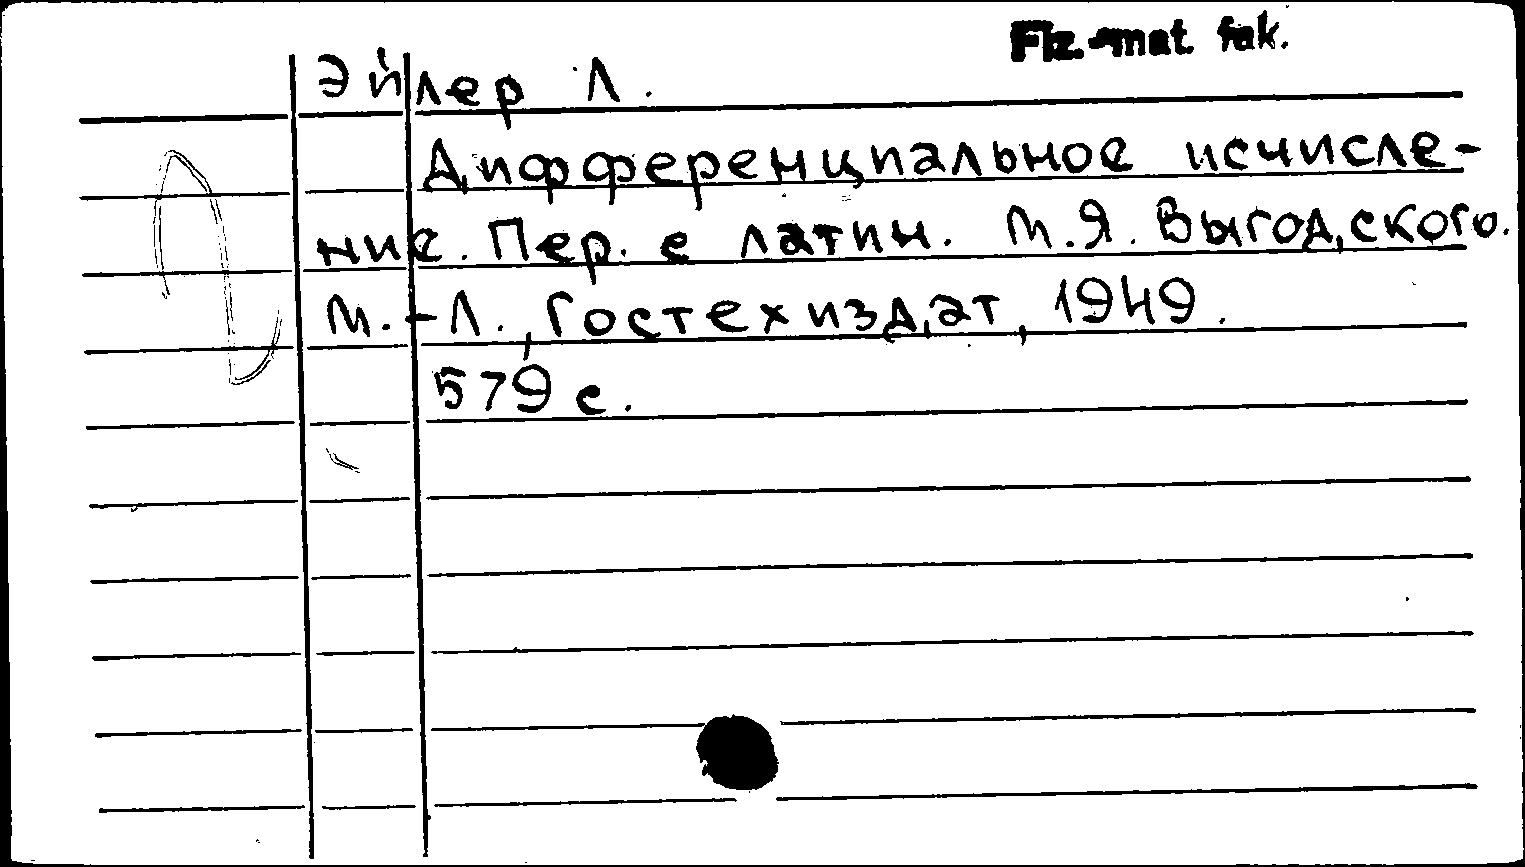 Fiz.-mat. fak.
Эйлер Л.
Дифференциальное исчисле-
ние. Пер. с латин. М.Я. Выгодского.
М.-Л., Гостехиздат, 1949.
579 с.